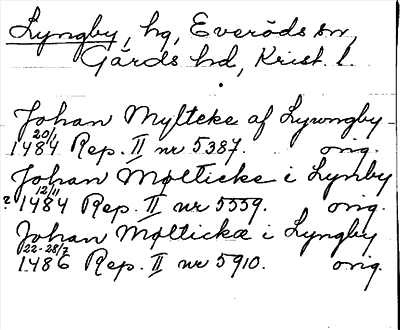 Lyngby, hg, Everöds sn,
Gärds hd, Krist. l.
Johan Mylteke af Lywngby
20/1
1484 Rep. II nr 5387. orig.
Johan Molticke i Lynby
12/11
? 1484 Rep. II nr 5559. orig.
Johan Molticka i Lyngby
22-28/7
1486 Rep. II nr 5910. orig.